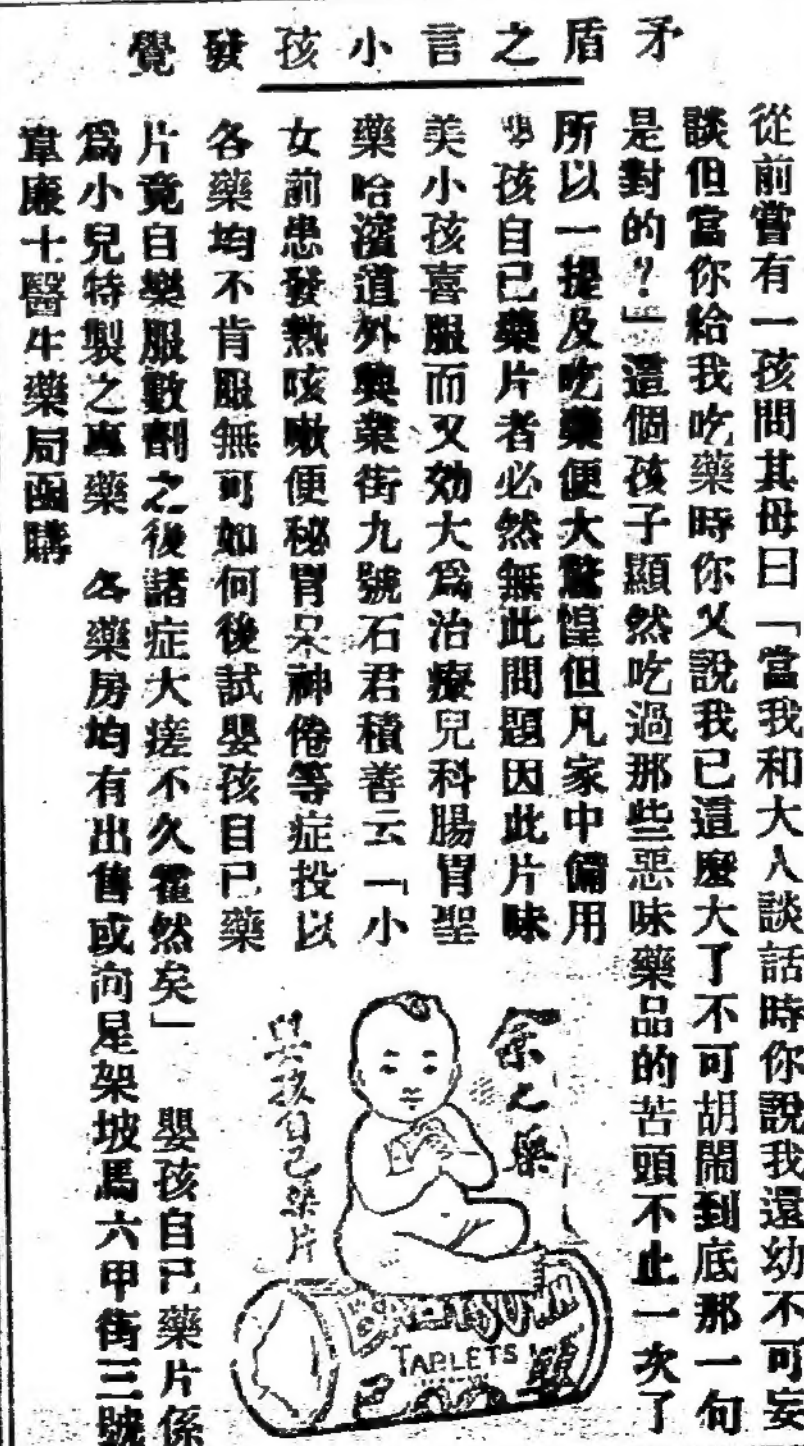 矛盾之言小孩發覺
從前嘗有一孩問其母曰「當我和大人談話時你說我還幼不可妄
談但當你給我吃藥時你又說我已這麼大了不可胡鬧到底那一句
是對的?」這個孩子顯然吃過那些惡味藥品的苦頭不止一次了
所以一提及吃藥便大驚惶但凡家中備用
孩自己藥片者必然無此問題因此片味
美小孩喜服而又効大爲治療兒科腸胃聖
藥哈濱道外興業街九號石君積善云「小
女前患發熱咳嗽便秘胃呆神倦等症投以
各藥均不肯服無可如何後試嬰孩自己藥
片竟自樂服數劑之後諸症大瘥不久霍然矣」 嬰孩自己藥片係
爲小兒特製之專藥 各藥房均有出售或向星架坡馬六甲街三號
韋廉士醫生藥局函購
余之藥
嬰孩自己藥片
BABY'S OWN
TABLETS